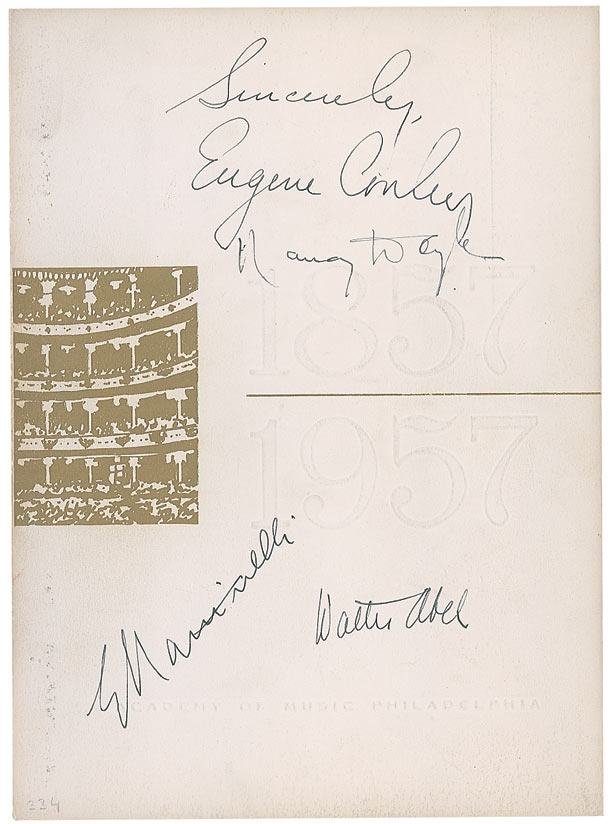 Sincerely,
Eugene Conley
Nancy
1857
1957
G Martinelli
Walter Abel
ACADEMY OF MUSIC PHILADELPHIA
334